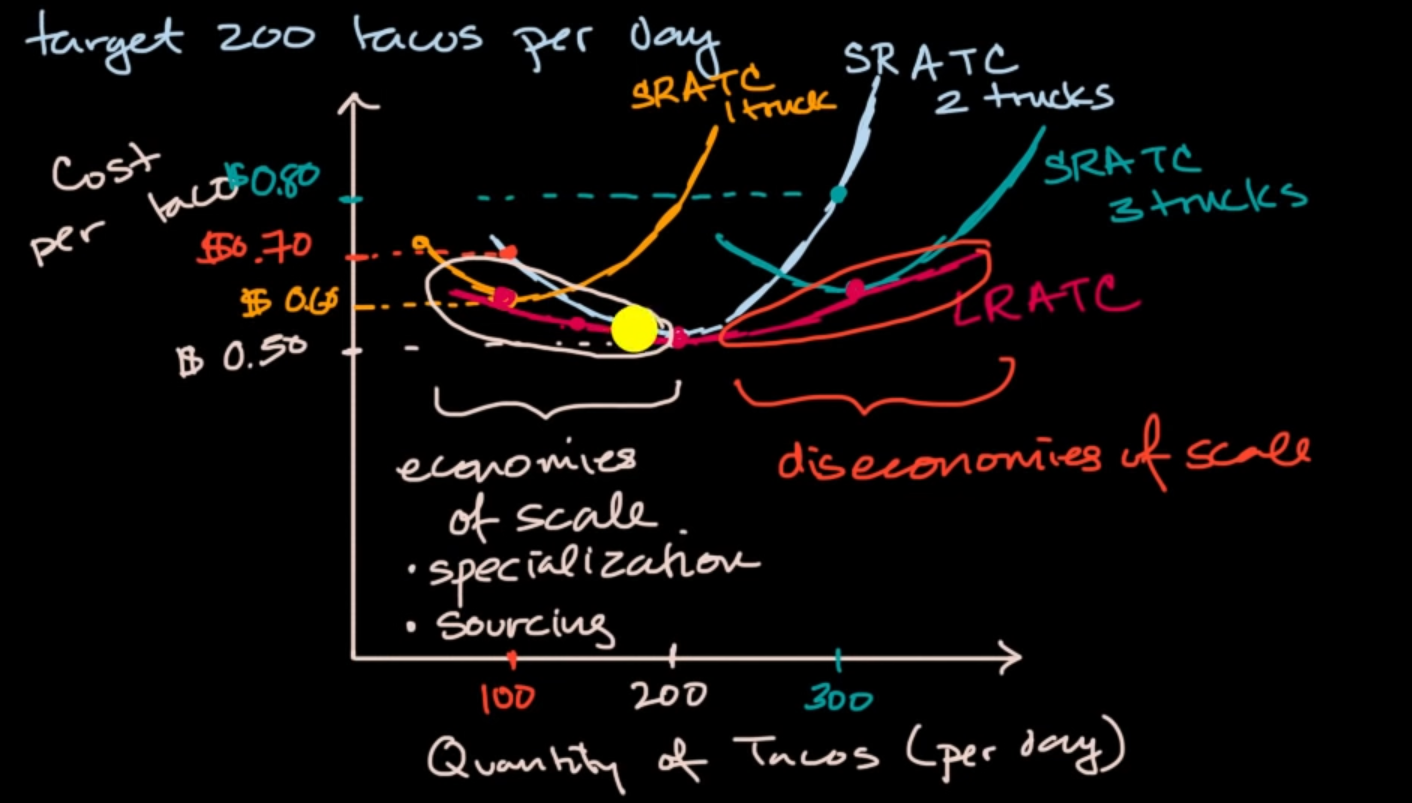 target 200 tacos per day
SRATC
1 truck
SRATC
2 trucks
SRATC
3 trucks
Cost
per taco
$0.80
$0.70
$0.50
LRATC
economies
of scale
• specialization
• sourcing
diseconomies of scale
100
200
300
Quantity of Tacos (per day)